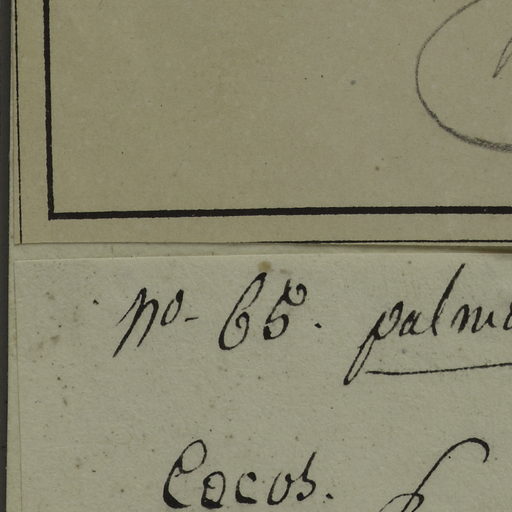 no- 65. palma
Cocos.